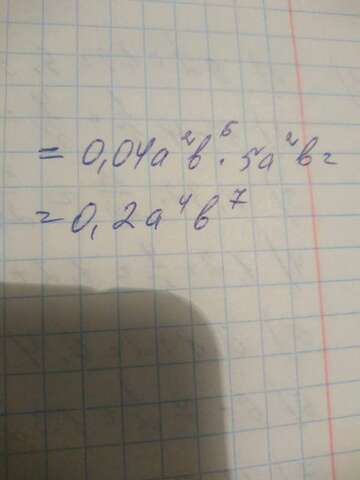 = 0,04a²b⁶ · 5a²b =
= 0,2a⁴b⁷